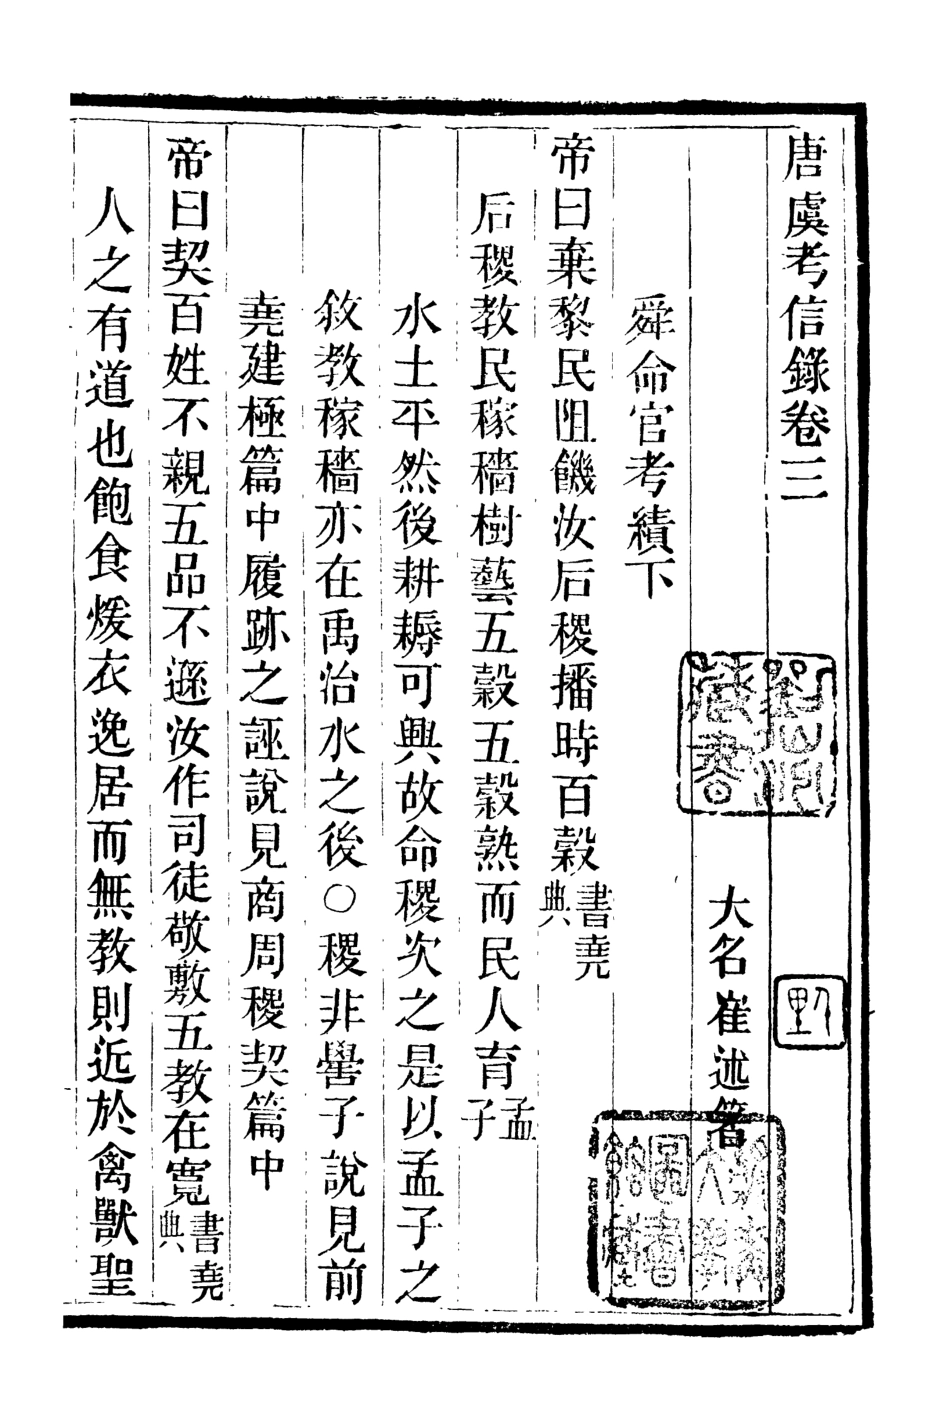 唐虞考信錄卷三
大名崔述著
舜命官考績下
帝曰棄黎民阻饑汝后稷播時百穀書堯典
后稷教民稼穡樹藝五穀五穀熟而民人育孟子
水土平然後耕耨可興故命稷次之是以孟子之
敘教稼穡亦在禹治水之後○稷非嚳子說見前
堯建極篇中履跡之誣說見商周稷契篇中
帝曰契百姓不親五品不遜汝作司徒敬敷五教在寬書堯典
人之有道也飽食煖衣逸居而無教則近於禽獸聖
藏書